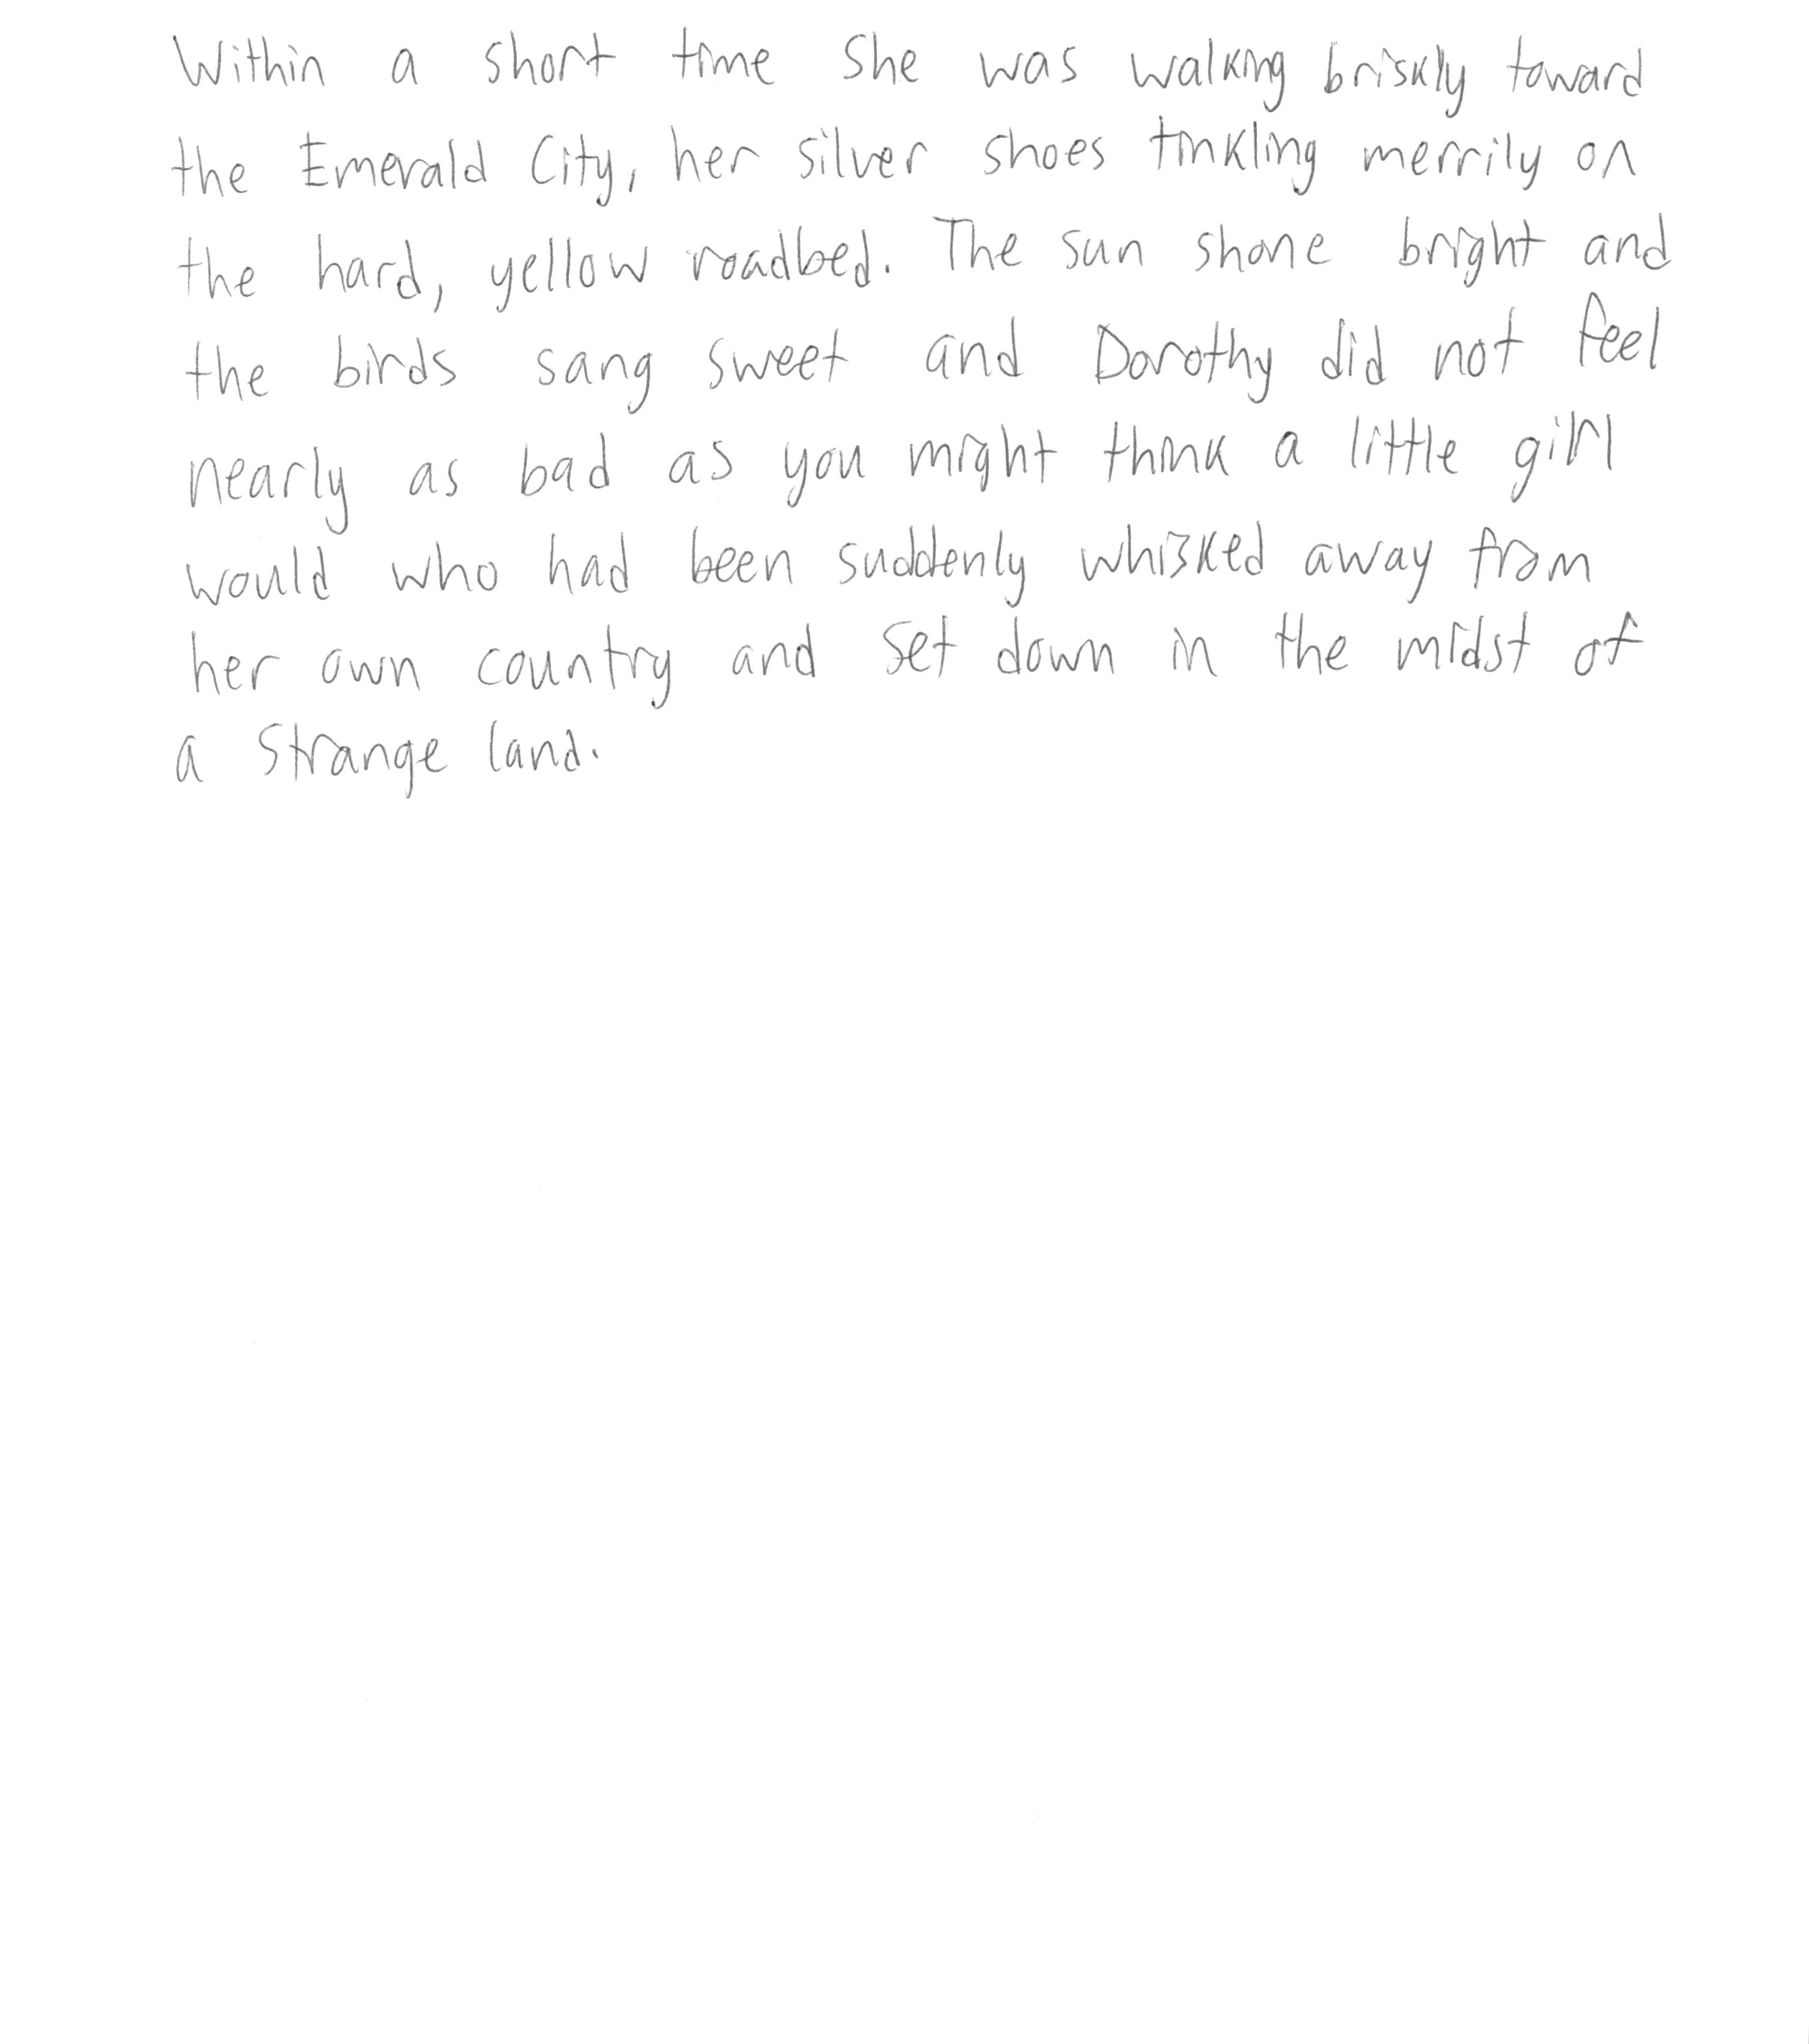 Within a short time she was walking briskly toward
the Emerald City, her silver shoes tinkling merrily on
the hard, yellow roadbed. The sun shone bright and
the birds sang sweet and Dorothy did not feel
nearly as bad as you might think a little girl
would who had been suddenly whisked away from
her own country and set down in the midst of
a strange land.